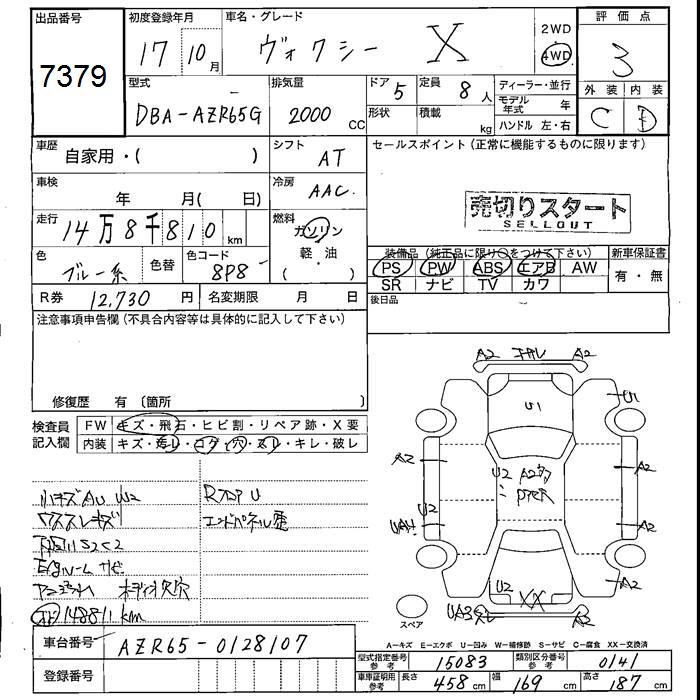 出品番号 初度登録年月 車名・グレード 2WD 評価点
7379 17 10月 ヴォクシー X 4WD 3
型式 排気量 ドア 5 定員 8人 ディーラー・並行 外装 内装
DBA-AZR65G 2000 CC 形状 積載 kg モデル年式 年 C D
ハンドル 左・右
車歴 自家用・( ) シフト AT セールスポイント(正常に機能するものに限ります)
車検 年 月( 日) 冷房 AAC
売切りスタート
SELLOUT
走行 14万8千810 km 燃料 ガソリン
(軽・油)
色 ブルー系 色替 色コード 8P8
装備品(純正品に限り○をつけて下さい) 新車保証書
PS PW ABS エアB AW 有・無
SR ナビ TV カワ
R券 12,730 円 名変期限 月 日 後日品
注意事項申告欄(不具合内容等は具体的に記入して下さい)
修復歴 有 (箇所 )
検査員記入欄 FW キズ・飛石・ヒビ割・リペア跡・X要
内装 キズ・汚レ・コゲ・穴・スレ・キレ・破レ
A2 A2
U1 U1
A2 A2
U2
U2
UA4 A2
A2
U2 XX
スペア UA3 A3
小キズ AU W2
148811 km
A-キズ E-エクボ U-凹み W-補修跡 S-サビ C-腐食 XX-交換済
車台番号 AZR65-0128107
型式指定番号 参考 15083 類別区分番号 参考 0141
登録番号 車車証明用 参考 長さ 458 cm 幅 169 cm 高さ 187 cm